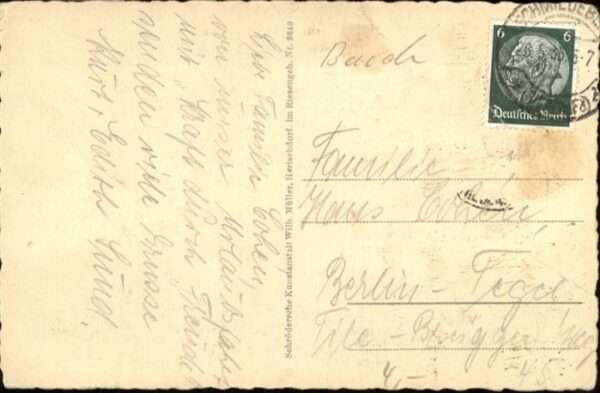 Liebe Familie Cohen,
von unser Urlaubsfahrt
mit "Kraft durch Freude"
senden viele Grüsse
Kurt, Edith Lund.
Schrödersche Kunstanstalt Wilh. Müller, Herischdorf, im Riesengeb. Nr. 2649
6 6
Deutsches Reich
SCHMIEDEB
Familie
Hans
Berlin-Tegel
Tile-Brügge Weg